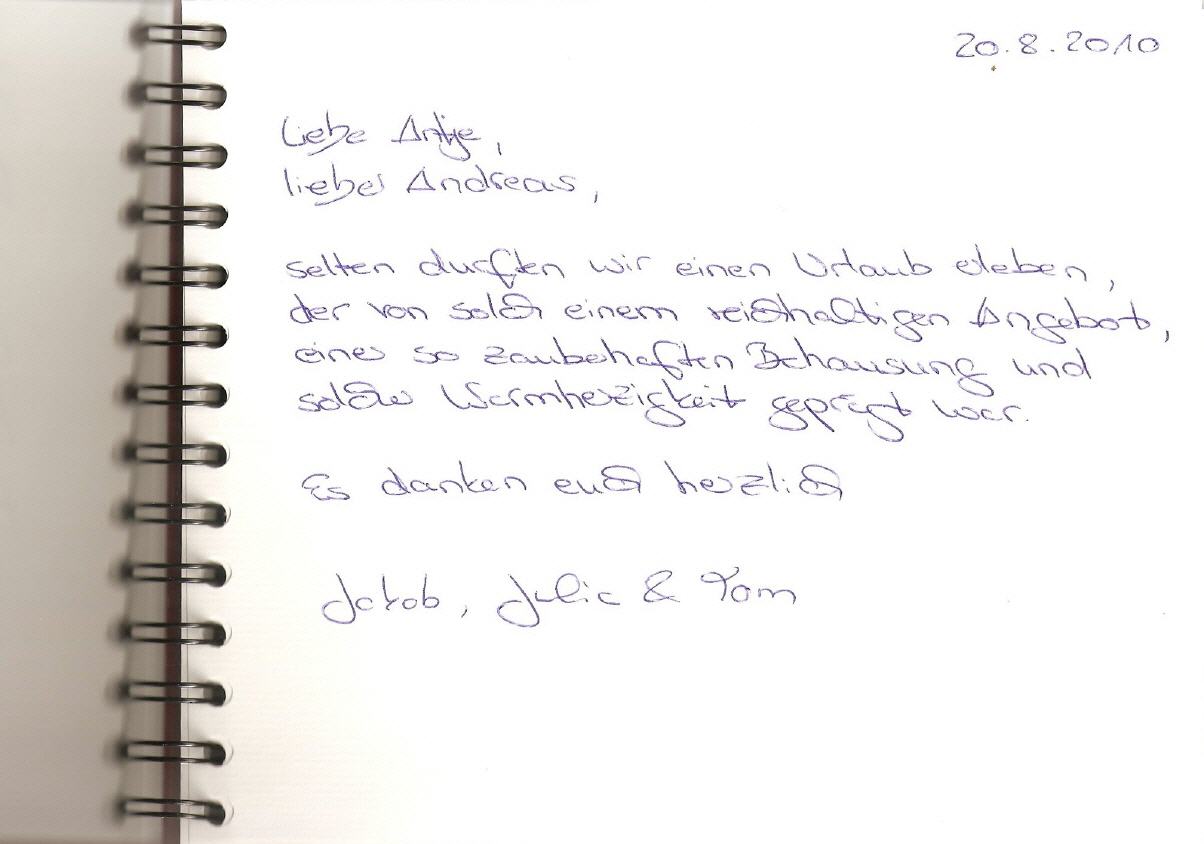 20.8.2010
Liebe Antje,
lieber Andreas,
selten durften wir einen Urlaub erleben,
der von solch einem reichhaltigen Angebot,
einer so zauberhaften Behausung und
solcher Warmherzigkeit geprägt war.
Es danken euch herzlich
Jakob, Julia & Tom